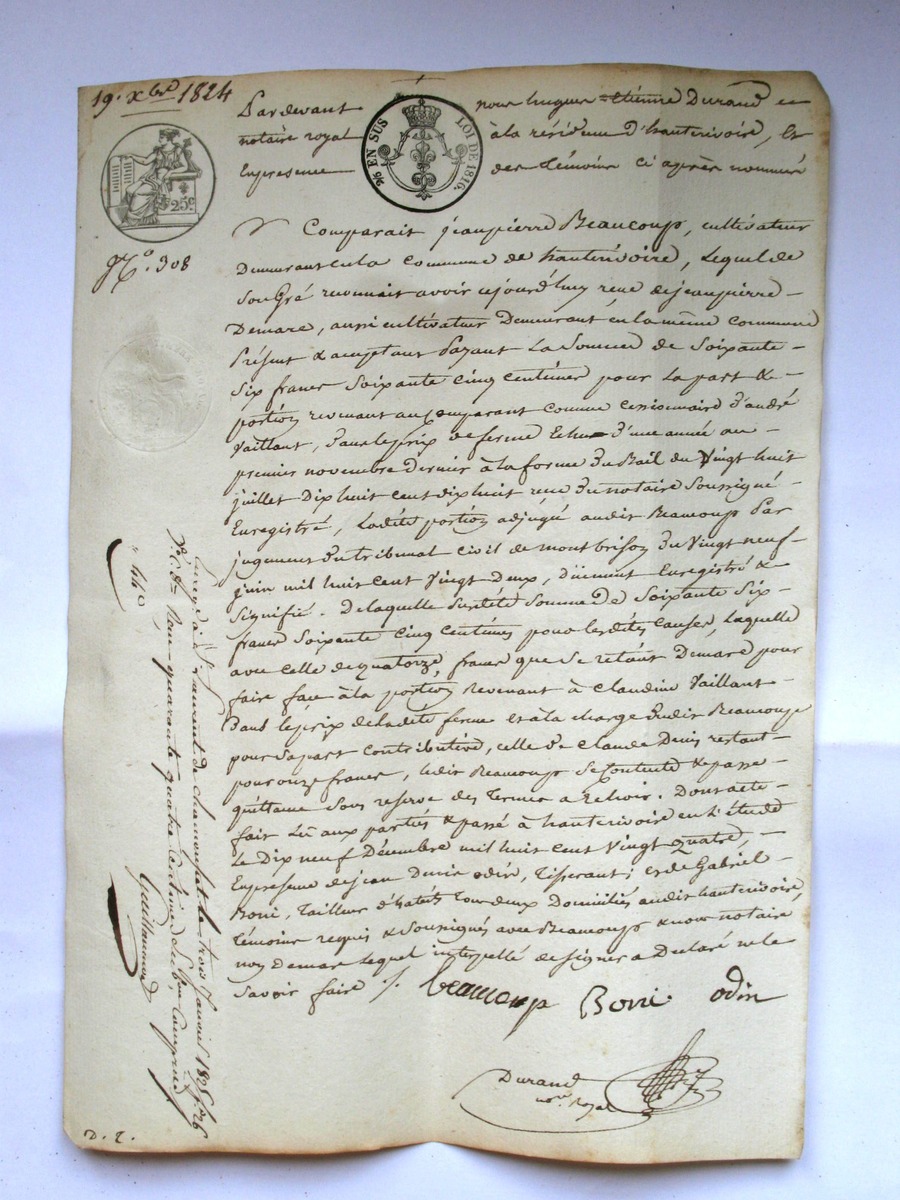 19. Xbre 1824
Pardevant nous hugues Etienne Durand
notaire royal à la résidence d'hauterivoire, Et
En presence des témoins ci après nommés
25 EN SUS LOI DE 1816.
25c
No. 308
Comparait jeanpierre Beaucoup, cultivateur
Demeurant en la commune de hauterivoire, Lequel de
son Gré reconnait avoir cejourd'huy recu de jeanpierre
Demare, aussi cultivateur Demeurant en la même commune
Présent & acceptant Payant La Somme de Soixante
Six francs Soixante Cinq Centimes pour la part &
portion revenant au Comparant comme cessionnaire d'andré
Vaillant, dans le prix de ferme Echu d'une année au
premier novembre dernier à la forme du Bail du Vingt huit
juillet Dix huit cent dix huit recu du notaire Soussigné
Enregistré, Ladite portion adjugé audit Beaucoup Par
jugement du tribunal civil de montbrison du Vingt neuf
juin mil huit cent Vingt Deux, düement Enregistré &
Signifié. De laquelle Susdite Somme de Soixante Six
francs Soixante Cinq Centimes pour lesdites Causes, Laquelle
avec celle de quatorze francs que Se retient Demare pour
faire face à la portion Revenant à Claudine Vaillant
Dans le prix de ladite ferme et à la charge dudit Beaucoup
pour Sa part Contributive, celle de Claude Denis restant
pour onze francs, ledit Beaucoup Se Contente & passe
quittance Sous reserve des termes a Echoir. Dont acte
fait Lu aux parties & passé à hauterivoire en L'étude
Le Dix neuf Décembre mil huit cent Vingt quatre,
En presence de jean Denis odin, Tisserant; et de Gabriel
Boni, Tailleur d'habits tous deux Domiciliés audit hauterivoire,
témoins requis & Soussignés avec Beaucoup & nous notaire
non Demare Lequel interpellé de signer a Déclaré ne le
Savoir faire ./.
beaucoup Boni odin
Durand
nore Royal
Enregé à St Laurent de chamousset le trois janvier 1825 fo 26
Ro C. 8e Reçu quarante quatre Centimes Subvon Comprise
" 44c
Guillaumod
D. 2.